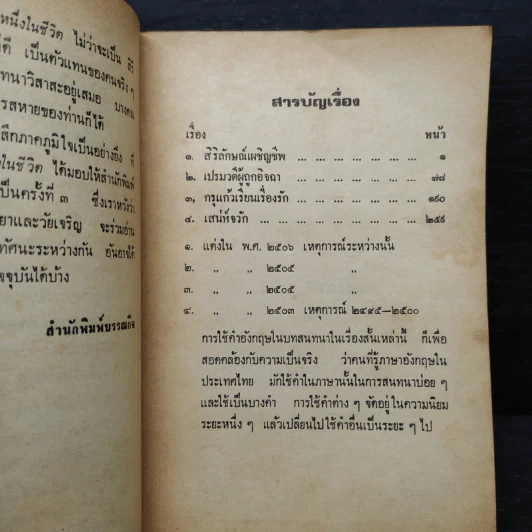 หนึ่งในชีวิต ไม่ว่าจะเป็น สิริ
ดี เป็นตัวแทนของคนจริง ๆ
ทนาวิสาสะอยู่เสมอ บางคน
รสหายของท่านก็ได้
สึกภาคภูมิใจเป็นอย่างยิ่ง ที่
งในชีวิต ได้มอบให้สำนักพิมพ์
เป็นครั้งที่ ๓ ซึ่งเราหวังว่า
ยาและวัยเจริญ จะร่วมอ่าน
ทัศนะระหว่างกัน อันอาจได้
จจุบันได้บ้าง
สำนักพิมพ์บรรณกิจ
สารบัญเรื่อง
เรื่อง หน้า
๑. สิริลักษณ์เผชิญชีพ ... ... ... ... ... ... ... ๑
๒. เปรมวดีผู้ถูกอิจฉา ... ... ... ... ... ... ... ๗๘
๓. กรุแก้วเรียนเรื่องรัก ... ... ... ... ... ... ๑๙๐
๔. เสน่ห์จวัก ... ... ... ... ... ... ... ... ๒๕๕
๑. แต่งใน พ.ศ. ๒๕๐๖ เหตุการณ์ระหว่างนั้น
๒. ,, ,, ๒๕๐๔ ,,
๓. ,, ,, ๒๕๐๕ ,,
๔. ,, ,, ๒๕๐๓ เหตุการณ์ ๒๔๙๕—๒๕๐๐
การใช้คำอังกฤษในบทสนทนาในเรื่องสั้นเหล่านี้ ก็เพื่อ
สอดคล้องกับความเป็นจริง ว่าคนที่รู้ภาษาอังกฤษใน
ประเทศไทย มักใช้คำในภาษานั้นในการสนทนาบ่อย ๆ
และใช้เป็นบางคำ การใช้คำต่าง ๆ จัดอยู่ในความนิยม
ระยะหนึ่ง ๆ แล้วเปลี่ยนไปใช้คำอื่นเป็นระยะ ๆ ไป